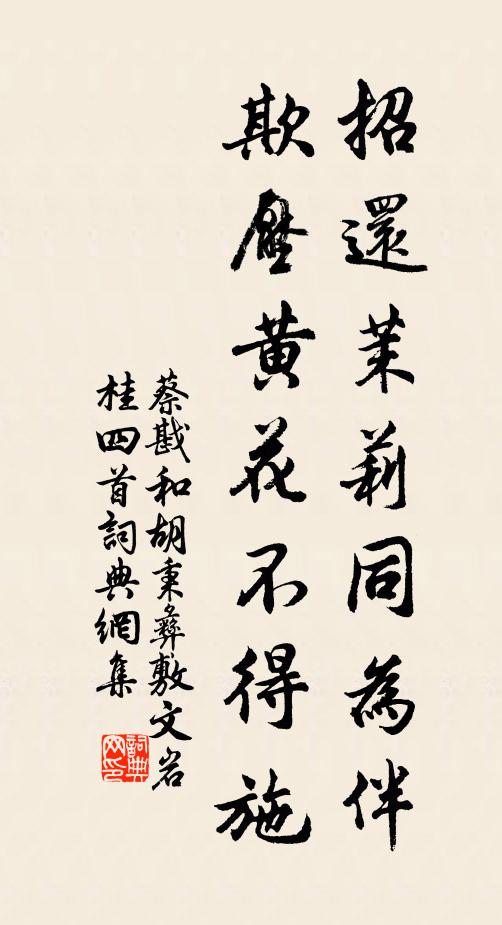 招還茉莉同為伴
欺壓黃花不得施
蔡戡和胡秉彝敷文岩
桂四首詞典網集
詞典
网印